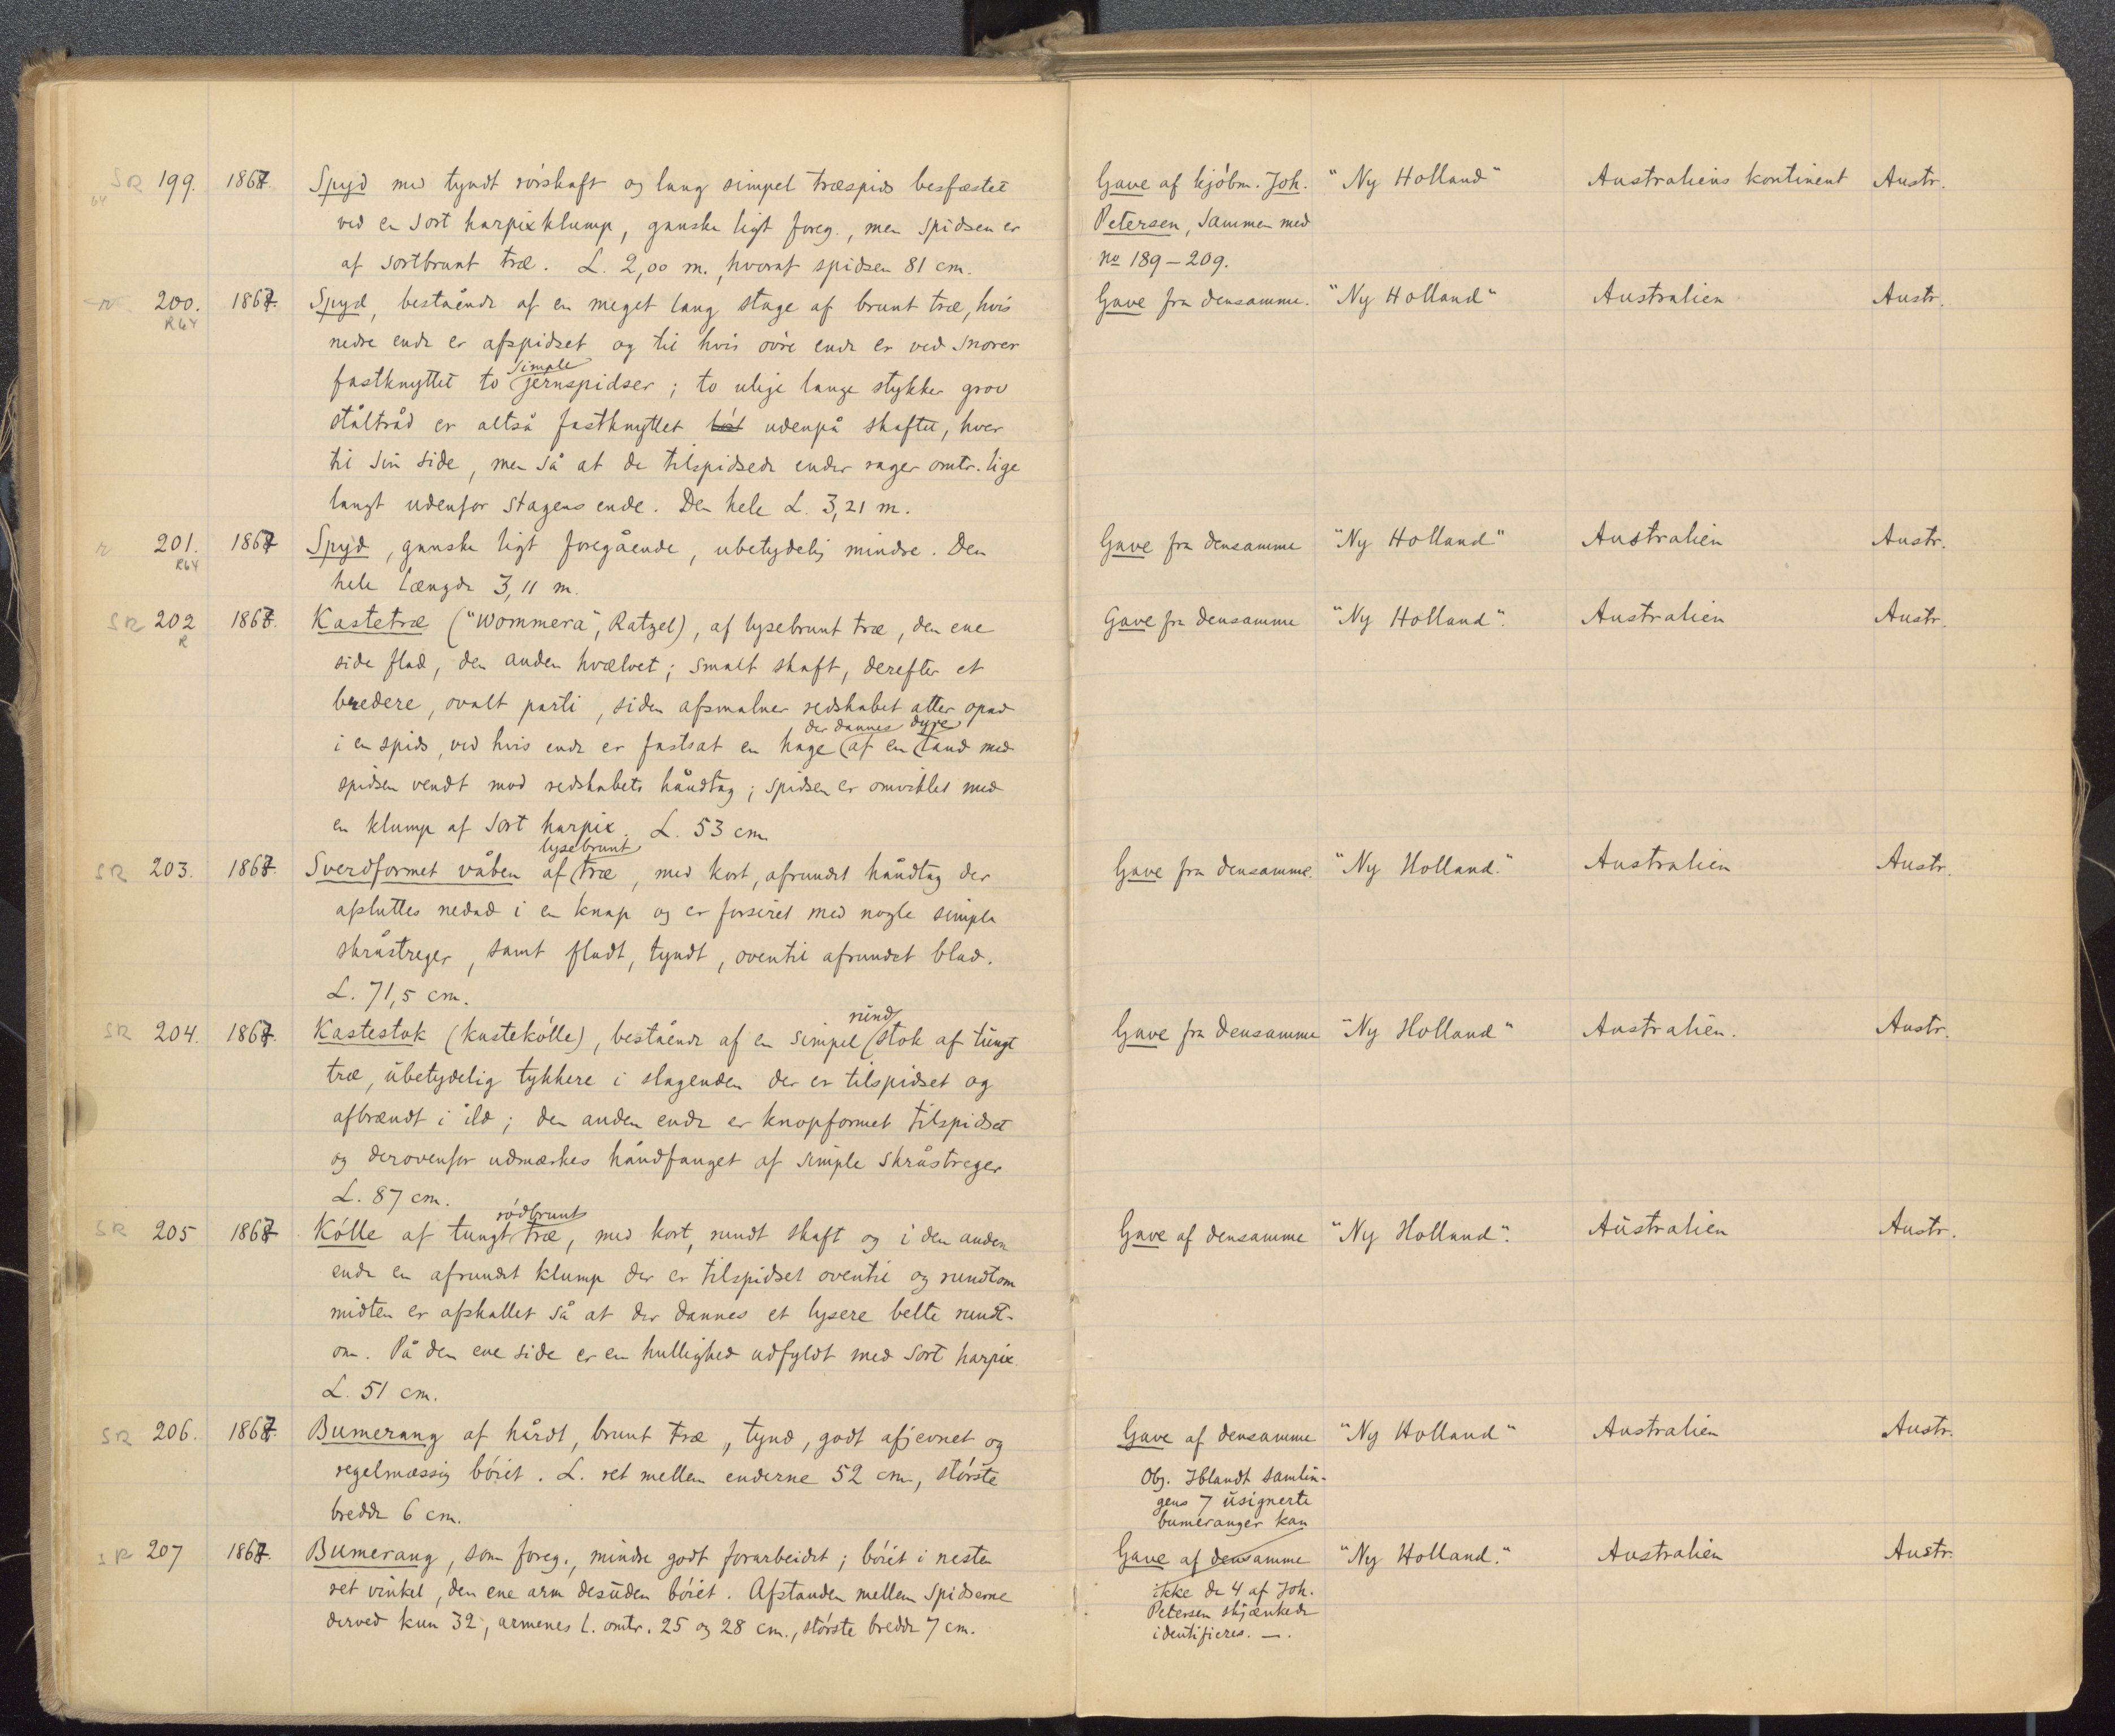 SR 199. 1867. Spyd med tyndt rörskaft og lang simpel træspids besfæstet Gave af kjöbm. Joh. "Ny Holland" Australiens kontinent Austr.
64 ved en sort harpixklump, ganske ligt foreg., men spidsen er Petersen, sammen med
af sortbrunt træ. L. 2,00 m., hvoraf spidsen 81 cm. no 189-209.
200. 1867. Spyd, bestående af en meget lang stage af brunt træ, hvis Gave fra densamme. "Ny Holland" Australien Austr.
R64 nedre ende er afspidset og til hvis övre ende er ved snorer
fastknyttet to simple jernspidser; to ulige lange stykker grov
ståltråd er altså fastknyttet udenpå skaftet, hver
til sin side, men så at de tilspidsede ender rager omtr. lige
langt udenfor stagens ende. Den hele L. 3,21 m.
r 201. 1867 Spyd, ganske ligt foregående, ubetydelig mindre. Den Gave fra densamme "Ny Holland" Australien Austr.
R64 hele længde 3,11 m.
SR 202 1867. Kastetræ ("Wommera", Ratzel), af lysebrunt træ, den ene Gave fra densamme "Ny Holland". Australien Austr.
R side flad, den anden hvælvet; smalt skaft, derefter et
bredere, ovalt parti, siden afsmalner redskabet atter opad
i en spids, ved hvis ende er fastsat en hage der dannes af en dyretand med
spidsen vendt mod redskabets håndtag; spidsen er omviklet med
en klump af sort harpix. L. 53 cm.
SR 203. 1867. Sverdformet våben af lysebrunt træ, med kort, afrundet håndtag der Gave fra densamme. "Ny Holland." Australien Austr.
afsluttes nedad i en knap og er forsiret med nogle simple
skråstreger, samt fladt, tyndt, oventil afrundet blad.
L. 71,5 cm.
SR 204. 1867. Kastestok (kastekölle), bestående af en simpel rund stok af tungt Gave fra densamme "Ny Holland" Australien. Austr.
træ, ubetydelig tykkere i slagenden der er tilspidset og
afbrændt i ild; den anden ende er knopformet tilspidset
og derovenfor udmærkes håndfanget af simple skråstreger
L. 87 cm.
SR 205 1867 Kölle af tungt rödbrunt træ, med kort, rundt skaft og i den anden Gave af densamme "Ny Holland". Australien Austr.
ende en afrundet klump der er tilspidset oventil og rundtom
midten er afskallet så at der dannes et lysere belte rundt-
om. På den ene side er en hullighed udfyldt med sort harpix.
L. 51 cm.
SR 206. 1867. Bumerang af hårdt, brunt træ, tynd, godt afjevnet og Gave af densamme "Ny Holland" Australien Austr.
regelmæssig böiet. L. ret mellem enderne 52 cm, störste Obs. Iblandt samlin-
bredde 6 cm. gens 7 usignerte
bumeranger kan
SR 207 1867. Bumerang, som foreg., mindre godt forarbeidet; böiet i nesten Gave af densamme "Ny Holland." Australien Austr.
ret vinkel, den ene arm desuden böiet. Afstanden mellem spidserne ikke de 4 af Joh.
derved kun 32, armenes l. omtr. 25 og 28 cm., störste bredde 7 cm. Petersen skjænkede
identifieres. —.